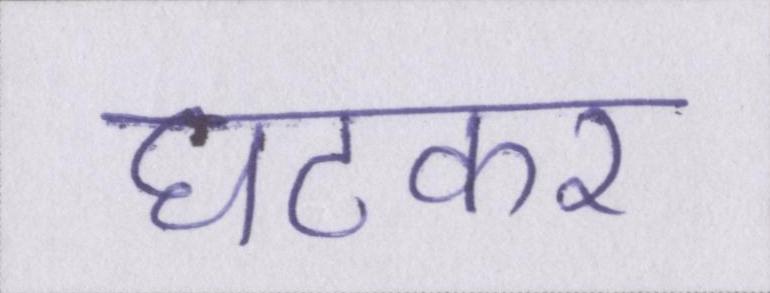 घटकर